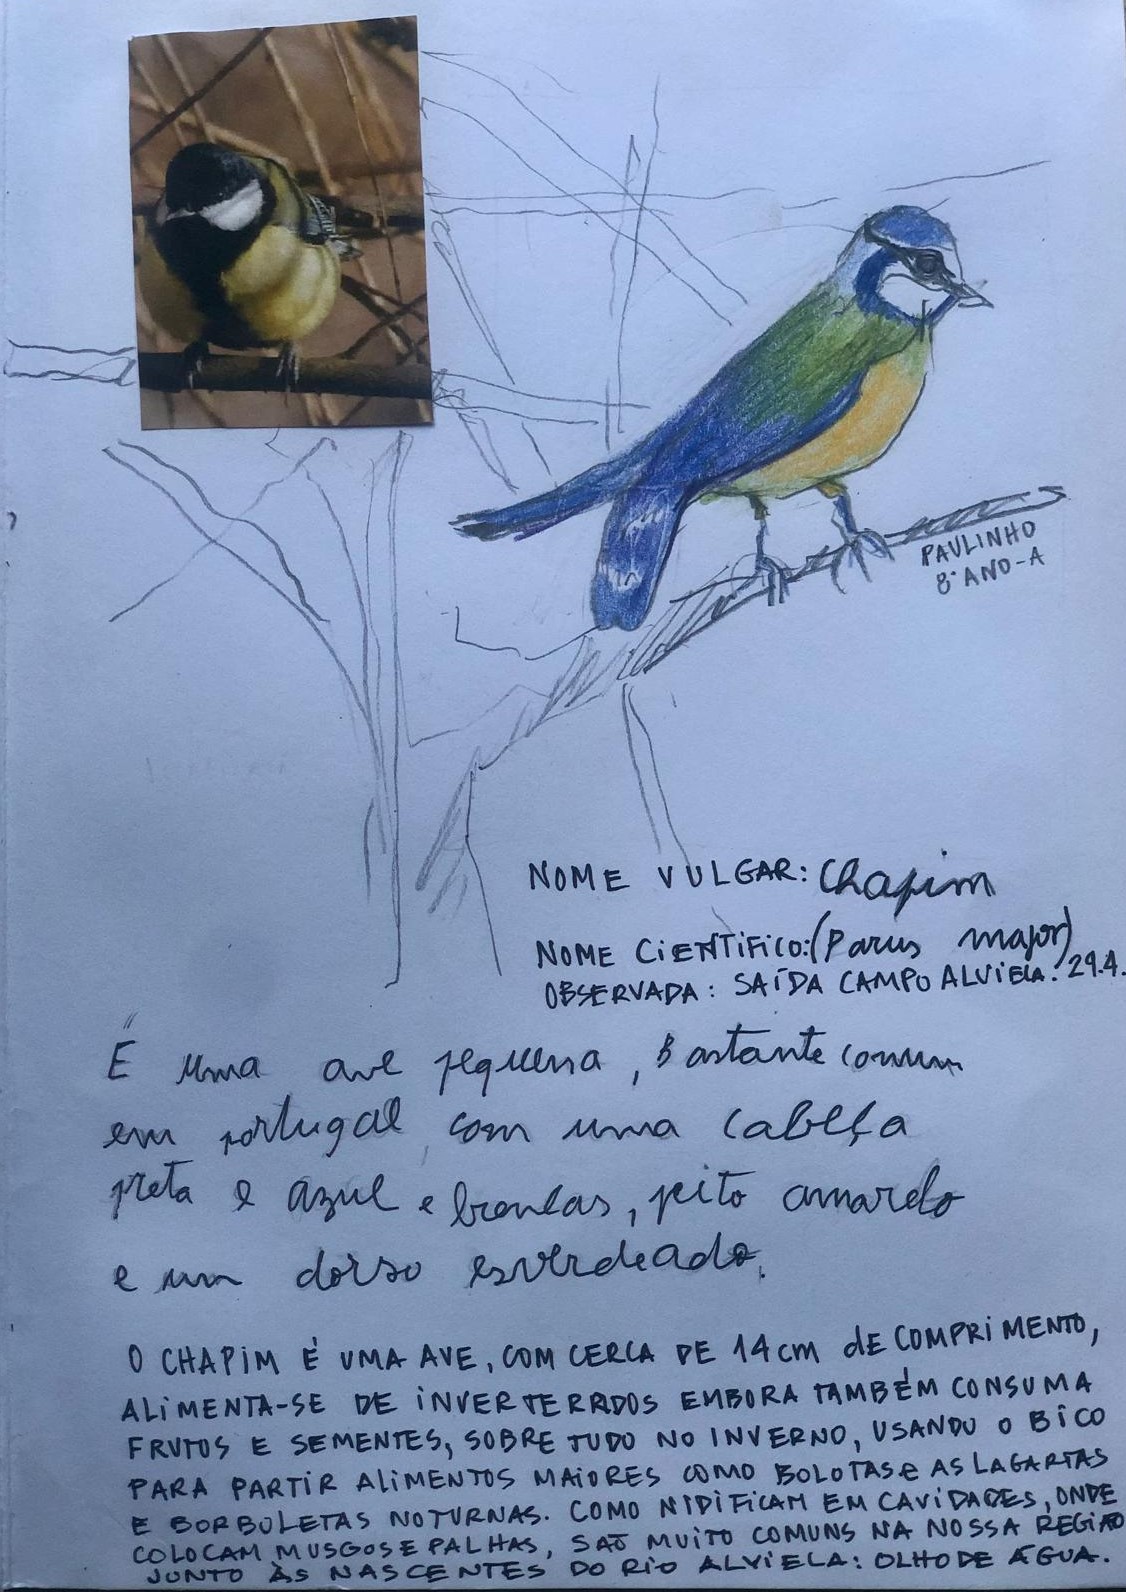 PAULINHO
8º ANO-A
NOME VULGAR: Chapim
NOME CIENTÍFICO: (Parus major)
OBSERVADA: SAÍDA CAMPO ALVIELA. 29.4.
É uma ave pequena, Bastante comum
em portugal, com uma cabeça
preta e azul e brancas, peito amarelo
e um dorso esverdeado.
O CHAPIM É UMA AVE, COM CERCA DE 14cm de COMPRIMENTO,
ALIMENTA-SE DE INVERTERADOS EMBORA TAMBÉM CONSUMA
FRUTOS E SEMENTES, SOBRE TUDO NO INVERNO, USANDO O BICO
PARA PARTIR ALIMENTOS MAIORES COMO BOLOTAS e AS LAGARTAS
E BORBOLETAS NOTURNAS. COMO NIDIFICAM EM CAVIDADES, ONDE
COLOCAM MUSGOS E PALHAS, SAÕ MUITO COMUNS NA NOSSA REGIAO
JUNTO ÀS NASCENTES DO RIO ALVIELA: OLHO DE ÁGUA.